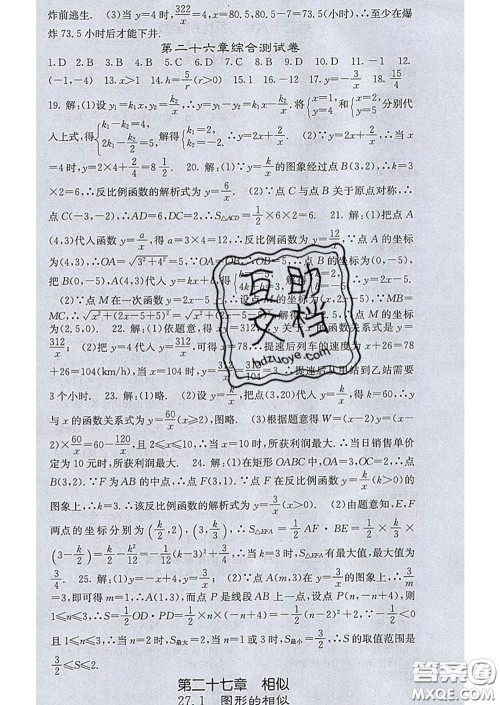 炸前逃生. (3)当 y=4 时,322/x=4,x=80.5,80.5-7=73.5(小时),∴至少在爆
炸 73.5 小时后才能下井.
第二十六章综合测试卷
1. D 2. B 3. B 4. D 5. A 6. D 7. B 8. D 9. C 10. A 11. D 12.
(-1,-4) 13. x>1 14. h=5/r(r>0) 15. 1 16. -12 17. y=-3/x 18. 15/4
19. 解:(1)设 y₁=k₁x,y₂=k₂/x,则 y=k₁x-k₂/x,将{x=1, y=4 和{x=2, y=5 分别代
人上式,得{k₁-k₂=4, 2k₁-k₂/2=5, 解得{k₁=2, k₂=-2. ∴y=2x+2/x. (2)∵y=2x+2/x,∴当 x
=4 时,y=2×4+2/4=8 1/2. 20. 解:(1)∵y=k/x的图象经过点 B(3,2),∴k=3
×2=6,∴反比例函数的解析式为 y=6/x. (2)∵点 C 与点 B 关于原点对称,∴
点 C(-3,-2),∴AD=6,DC=2,∴S△ACD=1/2×6×2=6. 21. 解:(1)把点 A
(4,3)代人函数 y=a/x,得 a=3×4=12,∴反比例函数为 y=12/x. ∵点 A 的坐标
为(4,3),∴OA=√3²+4²=5,∵OA=OB,∴OB=5,∴点 B 的坐标为(0,-5),
把 B(0,-5),A(4,3)代人 y=kx+b,得
(2)∵点 M 在一次函数 y=2x-5 上,∴设点 M 的坐标为(x,2x-5),∵MB=
MC,∴√x²+(2x-5+5)²=
为(2.5,0). 22. 解:(1)依题意,得
(2)把 y=4 代人 y=312/x,可得 x=78,∴提速后列车的速度为 x+26=78
+26=104(km/h),当 x=104 时,y=312/104=3. 答:提速后从甲站到乙站需要
3 个小时. 23. 解:(1)设函数关系式为 y=k/x,得 k=60,∴y
与 x 的函数关系式为 y=60/x(x≥2),图略. (3)根据题意得 W=(x-2)y=(x-2)
×60/x=60-120/x,且 2≤x≤10,∴当 x=10 时,所获利润最大. ∴当日销售单价
定为 10 元时,所获利润最大. 24. 解:(1)在矩形 OABC 中,OA=3,OC=2,∴点
B(3,2). ∵F 为 AB 的中点,∴点 F(3,1). ∵点 F 在反比例函数 y=k/x(k>0)的
图象上,∴k=3. ∴该反比例函数的解析式为 y=3/x(x>0). (2)由题意知,E,F
两点的坐标分别为(k/2,2),(3,k/3),∴S△EFA=1/2AF·BE=1/2×k/3×
(3-k/2)=k/2-k²/12=-1/12(k-3)²+3/4,∴当 k=3 时,S△EFA有最大值,最大值为
3/4. 25. 解:(1)3 (2)由题意知点 A(m,3)在 y=3/x的图象上,∴3/m
=3,即可得 m=1,而点 P 是线段 AB 上一点,设点 P(n,-n+4),则
1≤n≤3,∴S=1/2OD·PD=1/2×n×(-n+4)=-1/2(n-2)²+2,∵-1/2<0
且 1≤n≤3,∴当 n=2 时,S最大=2,当 n=1 或 3 时,S最小=3/2,∴S 的取值范围是
3/2≤S≤2.
第二十七章 相似
27.1 图形的相似
百助文档
bdzuoye.com
答案圈
MXQE.COM